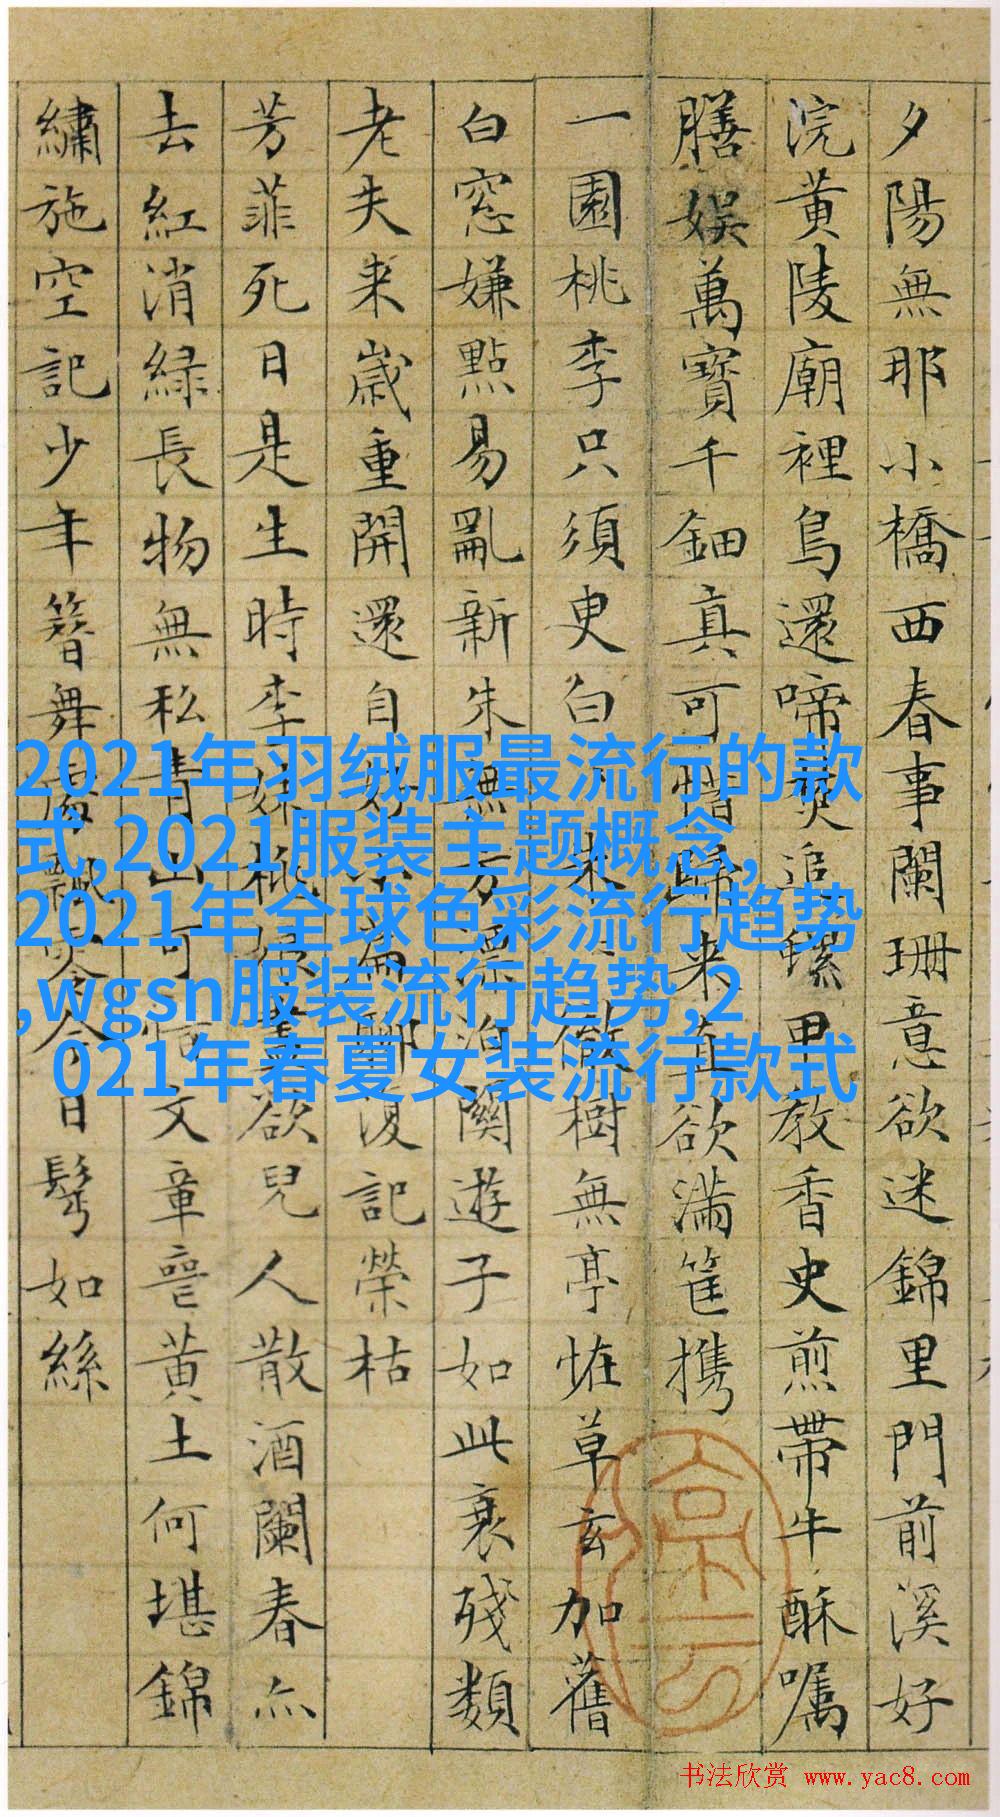 夕陽無那小橋西春事闌珊意欲迷錦里門前溪好
浣黃陵廟裡鳥還啼焚追螺甲教香史煎帶牛酥囑
膳娛萬寶千鈿真可惜歸来直欲滿筐攜
一園桃李只須臾白白朱朱徹樹無亭恠草玄加舊
白窓嫌點易亂新朱無方漂泊關遊子如此衰殘類
老夫来歲重開還自好小篇聊復記榮枯
芳菲死日是生時李妹桃娘盡欲兒人散酒闌春亦
去紅消緑長物無私青山可惜文章喪黃土何堪錦
繡施空記少年簪舞處飄零今日鬢如絲
2021年羽绒服最流行的款
式,2021服装主题概念,
2021年全球色彩流行趋势
,wgsn服装流行趋势,2
021年春夏女装流行款式
书法欣赏 www.yac8.com